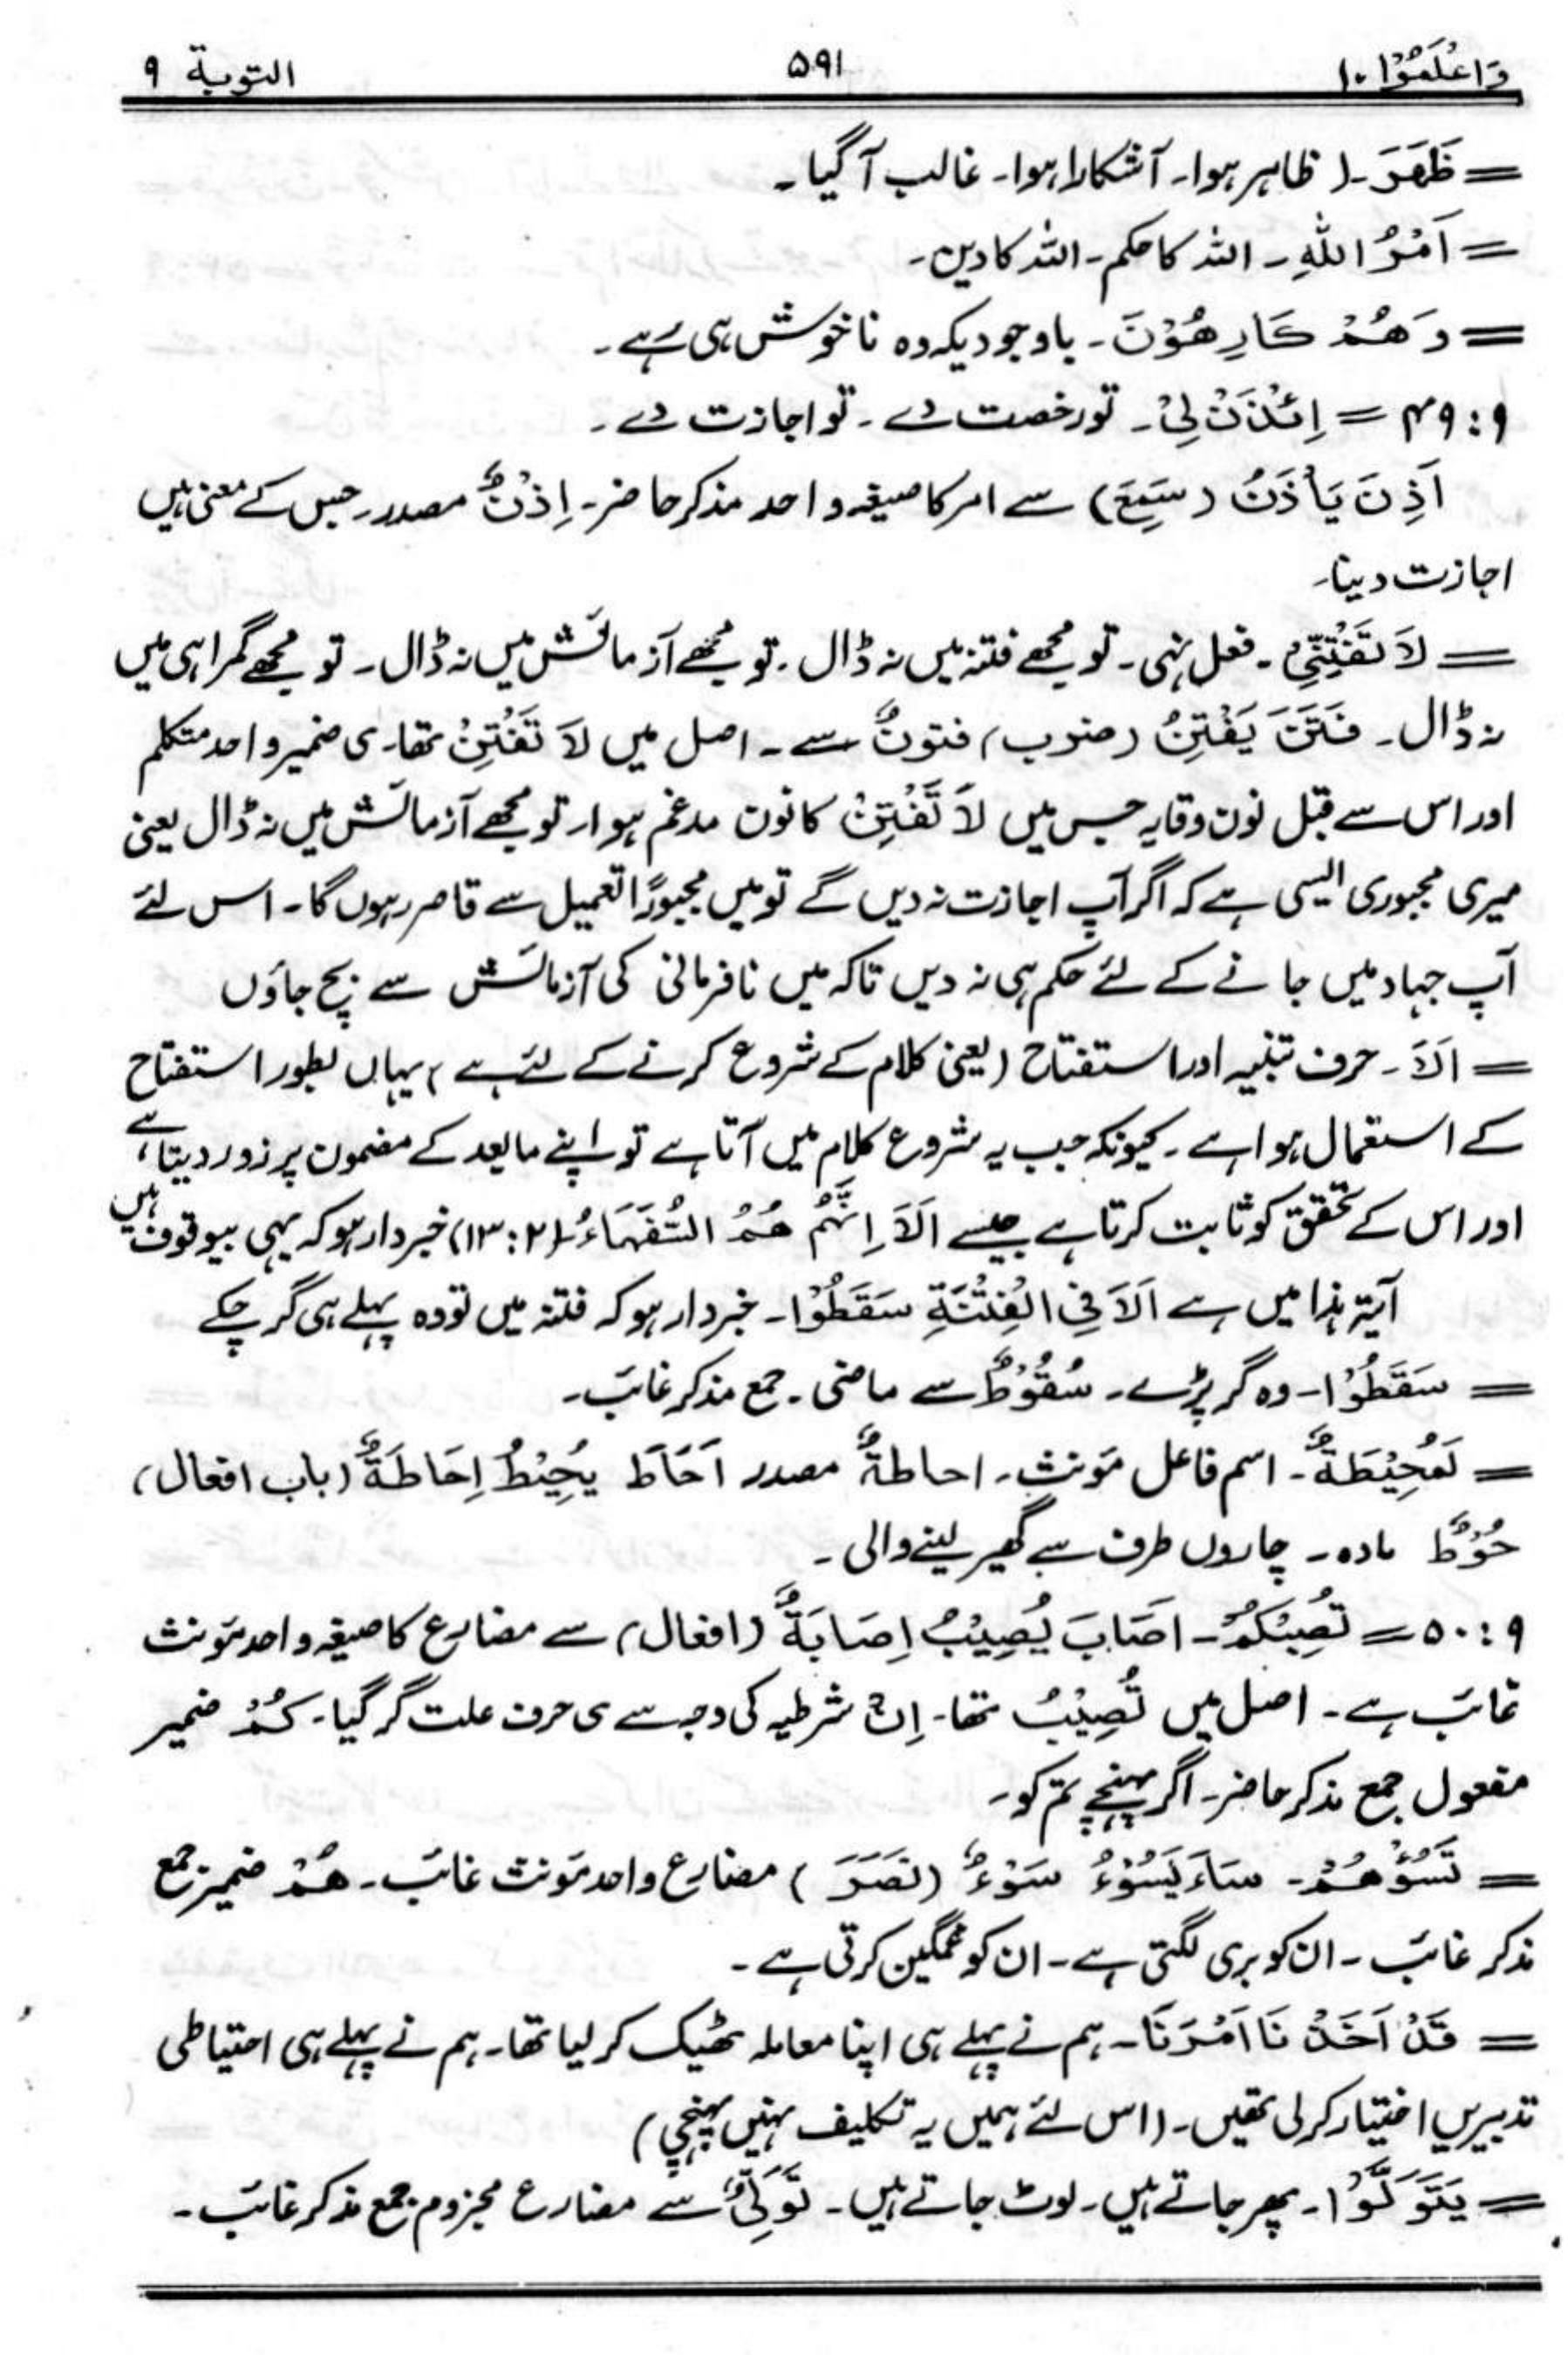 وَاعْلَمُوْا ۱۰ ۵۹۱ التوبة ۹
= ظَهَرَ۔ ( ظاہر ہوا۔ آشکارا ہوا۔ غالب آ گیا۔
= اَمْرُ اللّٰهِ۔ اللہ کا حکم۔ اللہ کا دین۔
= وَهُمْ كَارِهُوْنَ۔ باوجودیکہ وہ ناخوش ہی رہے۔
۹:۴۹ = اِئْذَنْ لِیْ۔ تو رخصت دے۔ تو اجازت دے۔
اَذِنَ یَأْذَنُ (سَمِعَ) سے امر کا صیغہ واحد مذکر حاضر۔ اِذْنٌ مصدر۔ جس کے معنی ہیں
اجازت دینا۔
= لَا تَفْتِنِّیْ۔ فعل نہی۔ تو مجھے فتنہ میں نہ ڈال۔ تو مجھے آزمائش میں نہ ڈال۔ تو مجھے گمراہی میں
نہ ڈال۔ فَتَنَ یَفْتِنُ (ضرب) فتونٌ سے۔ اصل میں لَا تَفْتِنْ تھا۔ ی ضمیر واحد متکلم
اور اس سے قبل نون وقایہ جس میں لَا تَفْتِنْ کا نون مدغم ہوا۔ تو مجھے آزمائش میں نہ ڈال یعنی
میری مجبوری ایسی ہے کہ اگر آپ اجازت نہ دیں گے تو میں مجبورًا تعمیل سے قاصر رہوں گا۔ اس لئے
آپ جہاد میں جانے کے لئے حکم ہی نہ دیں تاکہ میں نافرمانی کی آزمائش سے بچ جاؤں
= اَلَا۔ حرف تنبیہ اور استفتاح (یعنی کلام کے شروع کرنے کے لئے ہے) یہاں بطور استفتاح
کے استعمال ہوا ہے۔ کیونکہ جب یہ شروع کلام میں آتا ہے تو اپنے مابعد کے مضمون پر زور دیتا ہے،
اور اس کے تحقق کو ثابت کرتا ہے جیسے اَلَا اِنَّهُمْ هُمُ السُّفَهَاءُ (۲:۱۳) خبردار ہو کہ یہی بیوقوف ہیں
آیۃ ہذا میں ہے اَلَا فِی الْفِتْنَةِ سَقَطُوْا۔ خبردار ہو کہ فتنہ میں تو وہ پہلے ہی گر چکے
= سَقَطُوْا۔ وہ گر پڑے۔ سُقُوْطٌ سے ماضی۔ جمع مذکر غائب۔
= لَمُحِیْطَةٌ۔ اسم فاعل مؤنث۔ احاطةٌ مصدر اَحَاطَ یُحِیْطُ اِحَاطَةٌ (باب افعال)
حُوْطٌ مادہ۔ چاروں طرف سے گھیر لینے والی۔
۹:۵۰ = تُصِبْكُمْ۔ اَصَابَ یُصِیْبُ اِصَابَةٌ (افعال) سے مضارع کا صیغہ واحد مؤنث
غائب ہے۔ اصل میں تُصِیْبُ تھا۔ اِنْ شرطیہ کی وجہ سے ی حرف علت گر گیا۔ كُمْ ضمیر
مفعول جمع مذکر حاضر۔ اگر پہنچے تم کو۔
= تَسُؤْهُمْ۔ سَاءَ یَسُوْءُ سَوْءٌ (نَصَرَ) مضارع واحد مؤنث غائب۔ هُمْ ضمیر جمع
مذکر غائب۔ ان کو بری لگتی ہے۔ ان کو غمگین کرتی ہے۔
= قَدْ اَخَذْ نَا اَمْرَنَا۔ ہم نے پہلے ہی اپنا معاملہ ٹھیک کر لیا تھا۔ ہم نے پہلے ہی احتیاطی
تدبیریں اختیار کر لی تھیں۔ (اس لئے ہمیں یہ تکلیف نہیں پہنچی)
= یَتَوَلَّوْا۔ پھر جاتے ہیں۔ لوٹ جاتے ہیں۔ تَوَلِّیٌ سے مضارع مجزوم جمع مذکر غائب۔